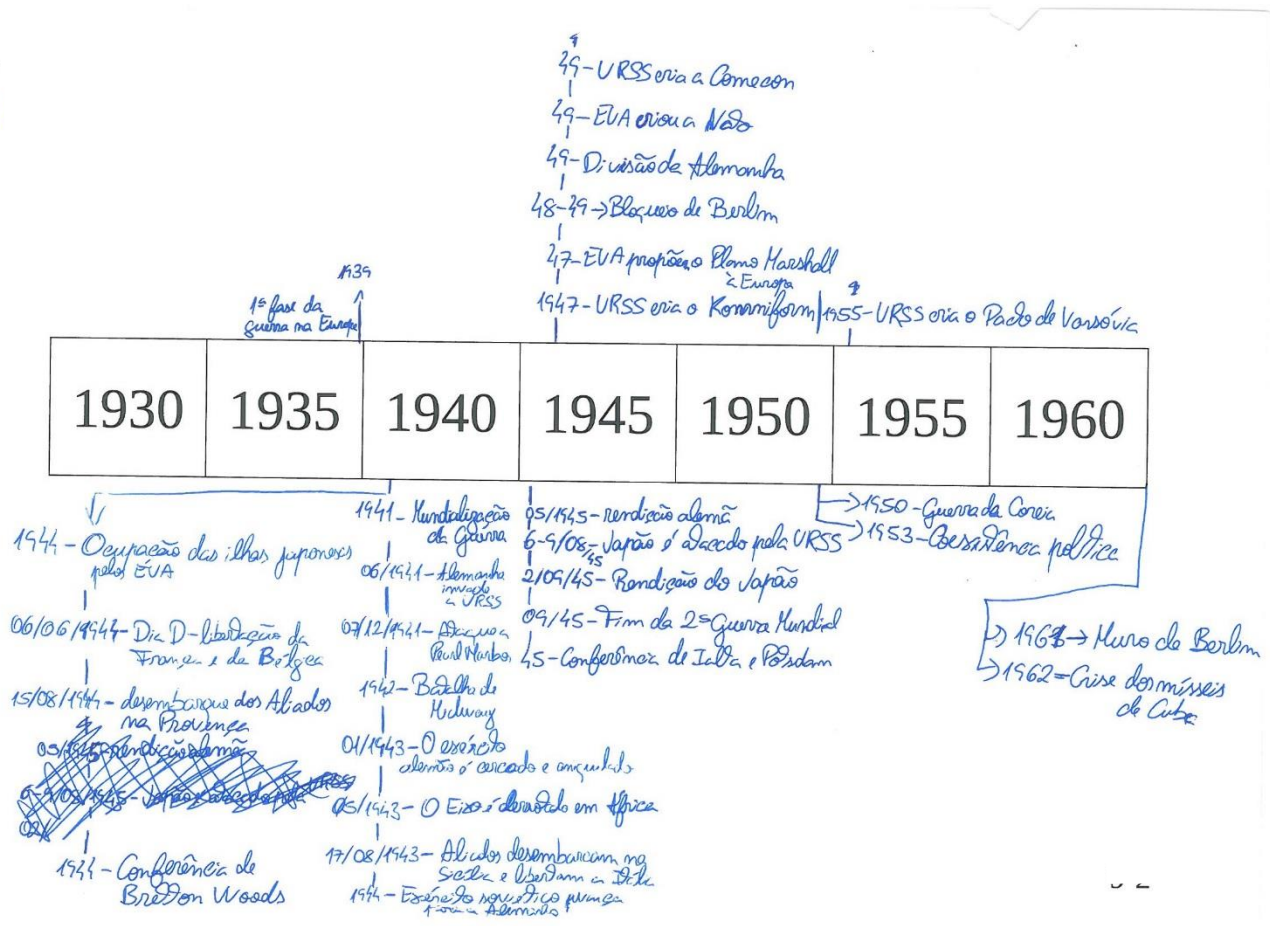 49-URSS cria a Comecon
49-EUA criou a Nato
49-Divisão da Alemanha
48-49→Bloqueio de Berlim
47-EUA propõe o Plano Marshall
à Europa
1947-URSS cria o Kominiform
1955-URSS cria o Pacto de Varsóvia
1939
1ª fase da
guerra na Europa
1930 1935 1940 1945 1950 1955 1960
1944-Ocupação das ilhas japonesas
pelos EUA
06/06/1944-Dia D-libertação da
França e da Bélgica
15/08/1944-desembarque dos Aliados
na Provença
05/1945-rendição alemã
6-9/08/1945-Japão é atacado pela URSS
02/
1944-Conferência de
Bretton Woods
1941-Mundialização
da Guerra
06/1941-Alemanha
invade
a URSS
07/12/1941-Ataque a
Pearl Harbor
1942-Batalha de
Midway
01/1943-O exército
alemão é cercado e aniquilado
05/1943-O Eixo é derrotado em África
17/08/1943-Aliados desembarcam na
Sicília e libertam a Itália
1944-Exército soviético avança
Alemanha
05/1945-rendição alemã
6-9/08/45-Japão é atacado pela URSS
2/09/45-Rendição do Japão
09/45-Fim da 2ª Guerra Mundial
45-Conferência de Ialta e Potsdam
→1950-Guerra da Coreia
→1953-Coexistência política
→1961→Muro de Berlim
→1962-Crise dos mísseis
de Cuba